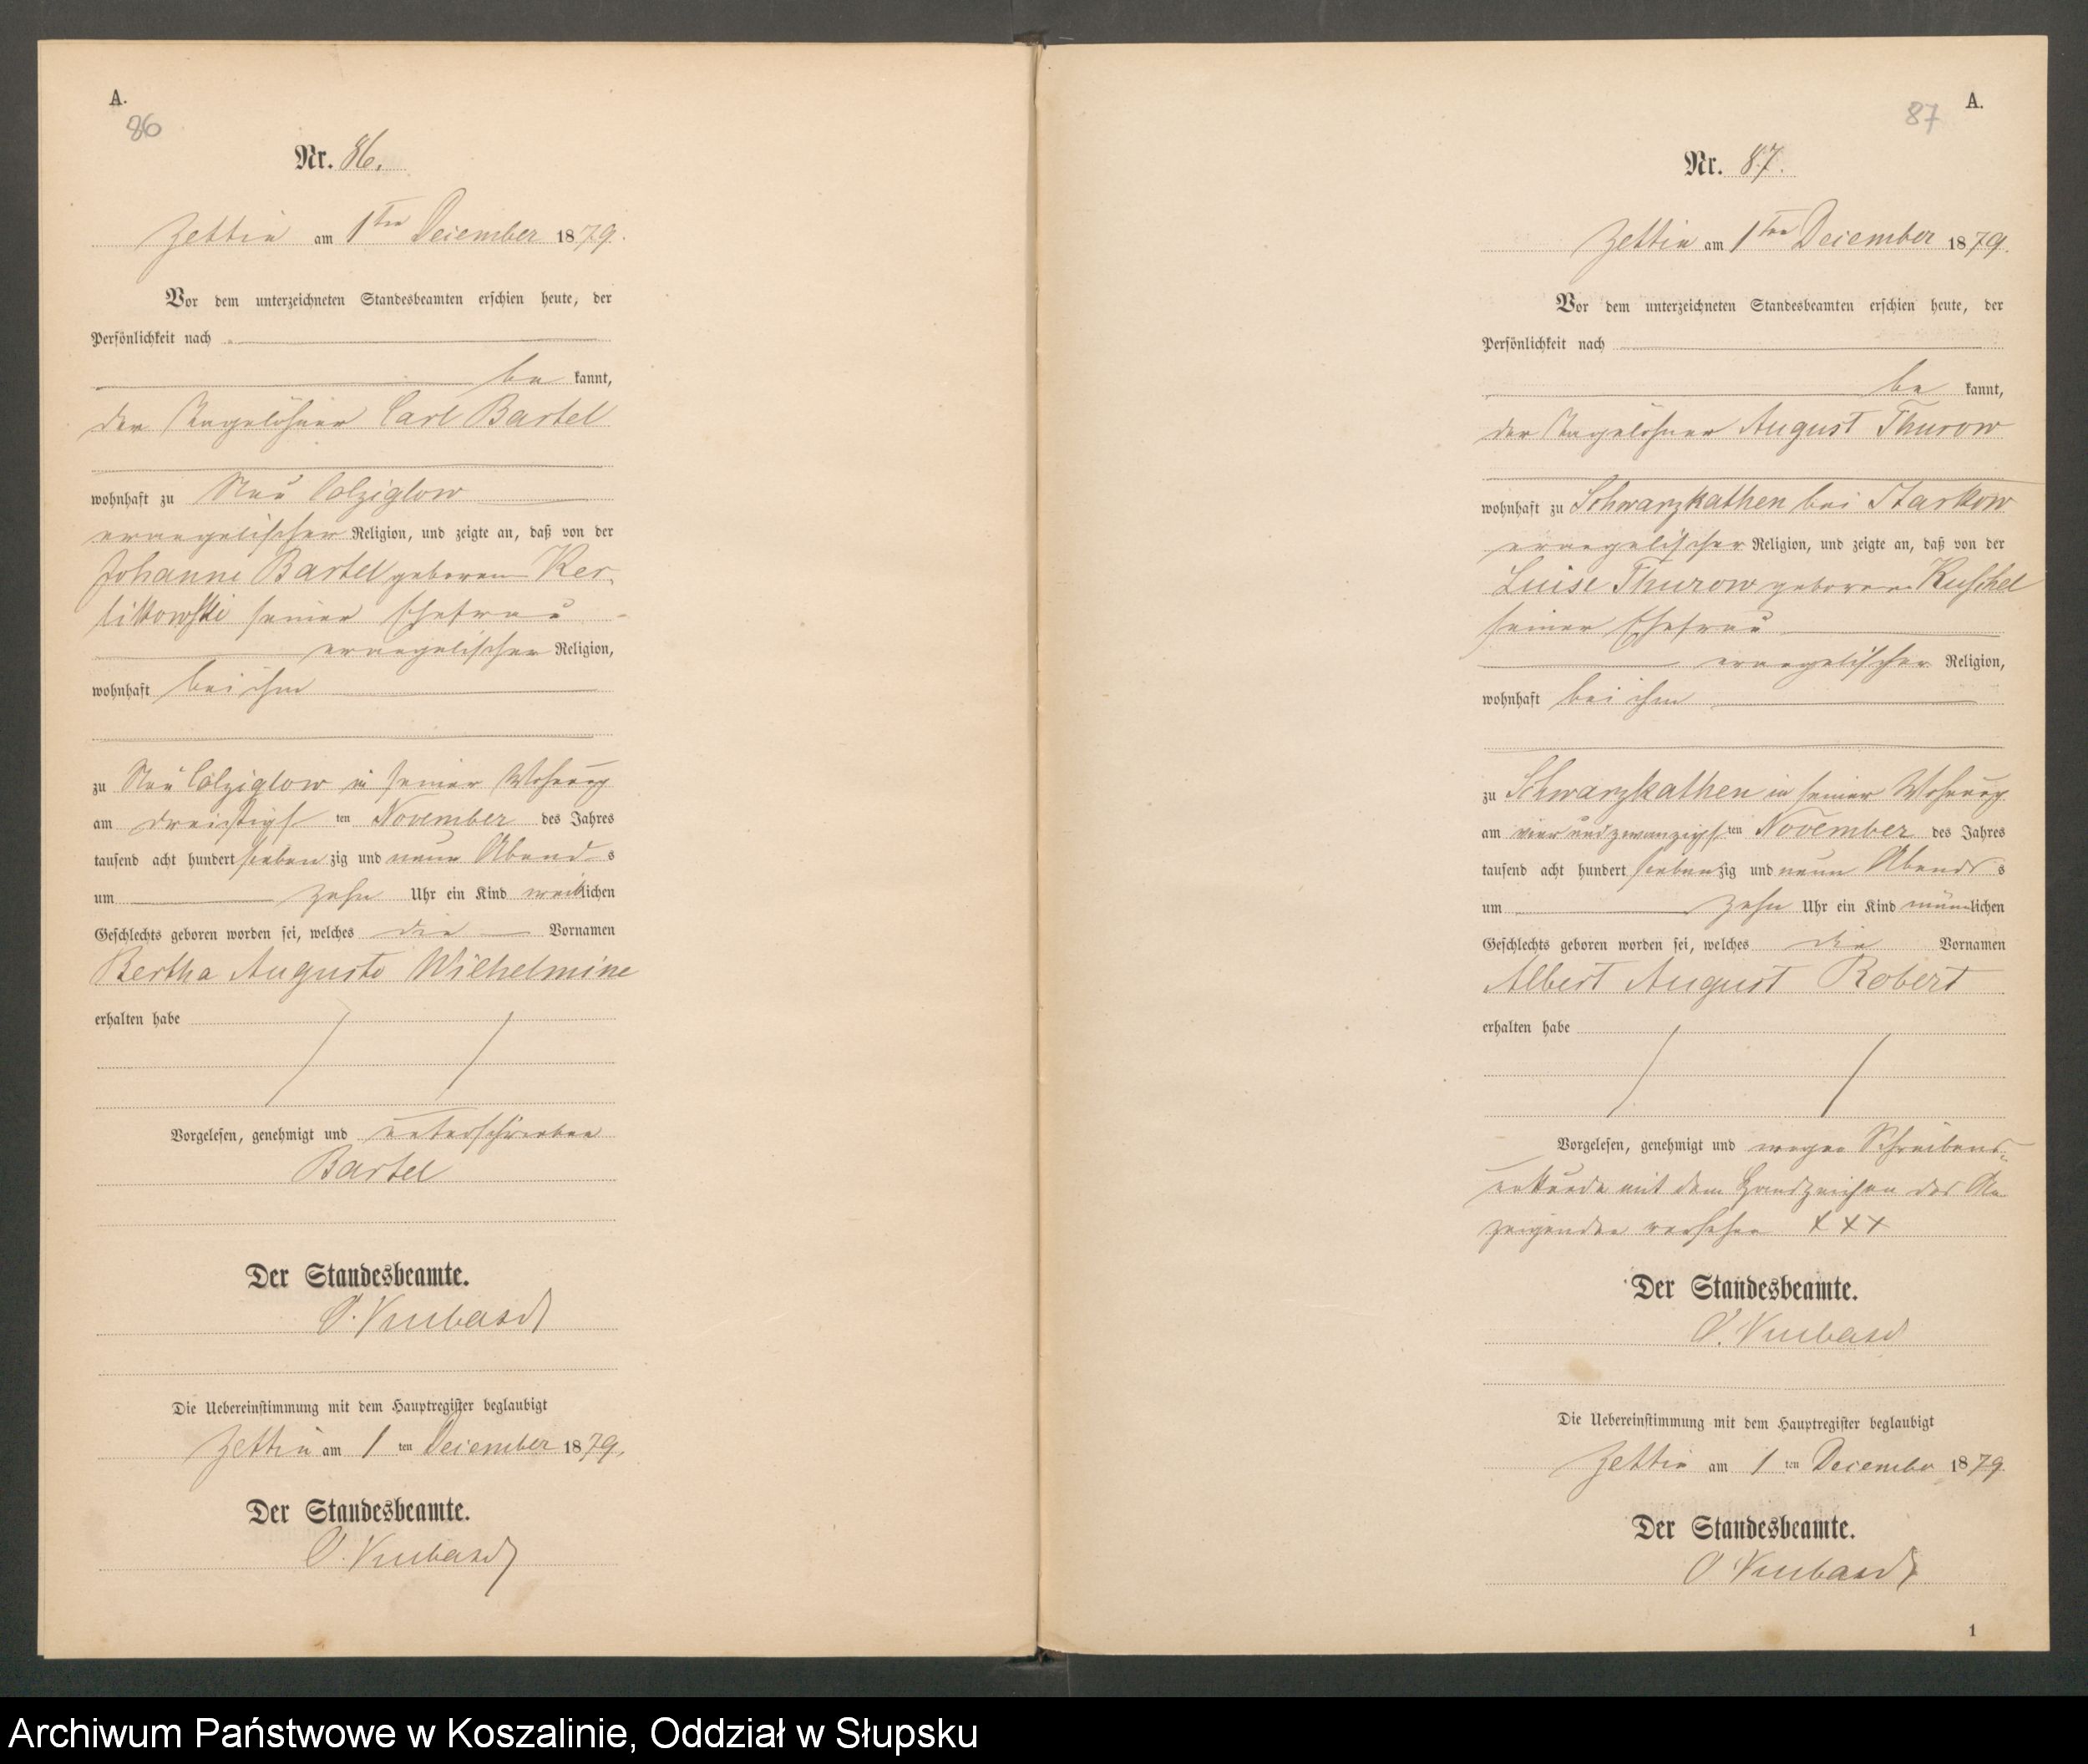 A.
86
Nr. 86.
Zettin am 1ten December 1879.
Vor dem unterzeichneten Standesbeamten erschien heute, der
Persönlichkeit nach
be kannt,
der Tagelöhner Carl Bartel
wohnhaft zu Neu Colziglow
evangelischer Religion, und zeigte an, daß von der
Johanne Bartel geborenen
seiner Ehefrau
evangelischer Religion,
wohnhaft bei ihm
zu Neu Colziglow in seiner Wohnung
am dreißigsten November des Jahres
tausend acht hundert siebenzig und neun Abends
um zehn Uhr ein Kind weiblichen
Geschlechts geboren worden sei, welches die Vornamen
Bertha Auguste Wilhelmine
erhalten habe
Vorgelesen, genehmigt und unterschrieben
Bartel
Der Standesbeamte.
Die Uebereinstimmung mit dem Hauptregister beglaubigt
Zettin am 1 ten December 1879.
Der Standesbeamte.
A.
87
Nr. 87.
Zettin am 1ten December 1879.
Vor dem unterzeichneten Standesbeamten erschien heute, der
Persönlichkeit nach
be kannt,
der Tagelöhner August Thurow
wohnhaft zu Schwarzkathen bei Starkow
evangelischer Religion, und zeigte an, daß von der
Luise Thurow geborenen Kuschel
seiner Ehefrau
evangelischer Religion,
wohnhaft bei ihm
zu Schwarzkathen in seiner Wohnung
am vierundzwanzigsten November des Jahres
tausend acht hundert siebenzig und neun Abends
um zehn Uhr ein Kind männlichen
Geschlechts geboren worden sei, welches die Vornamen
Albert August Robert
erhalten habe
Vorgelesen, genehmigt und wegen Schreibens-
unkunde mit dem Handzeichen des An
zeigenden versehen +++
Der Standesbeamte.
Die Uebereinstimmung mit dem Hauptregister beglaubigt
Zettin am 1 ten December 1879.
Der Standesbeamte.
1
Archiwum Państwowe w Koszalinie, Oddział w Słupsku